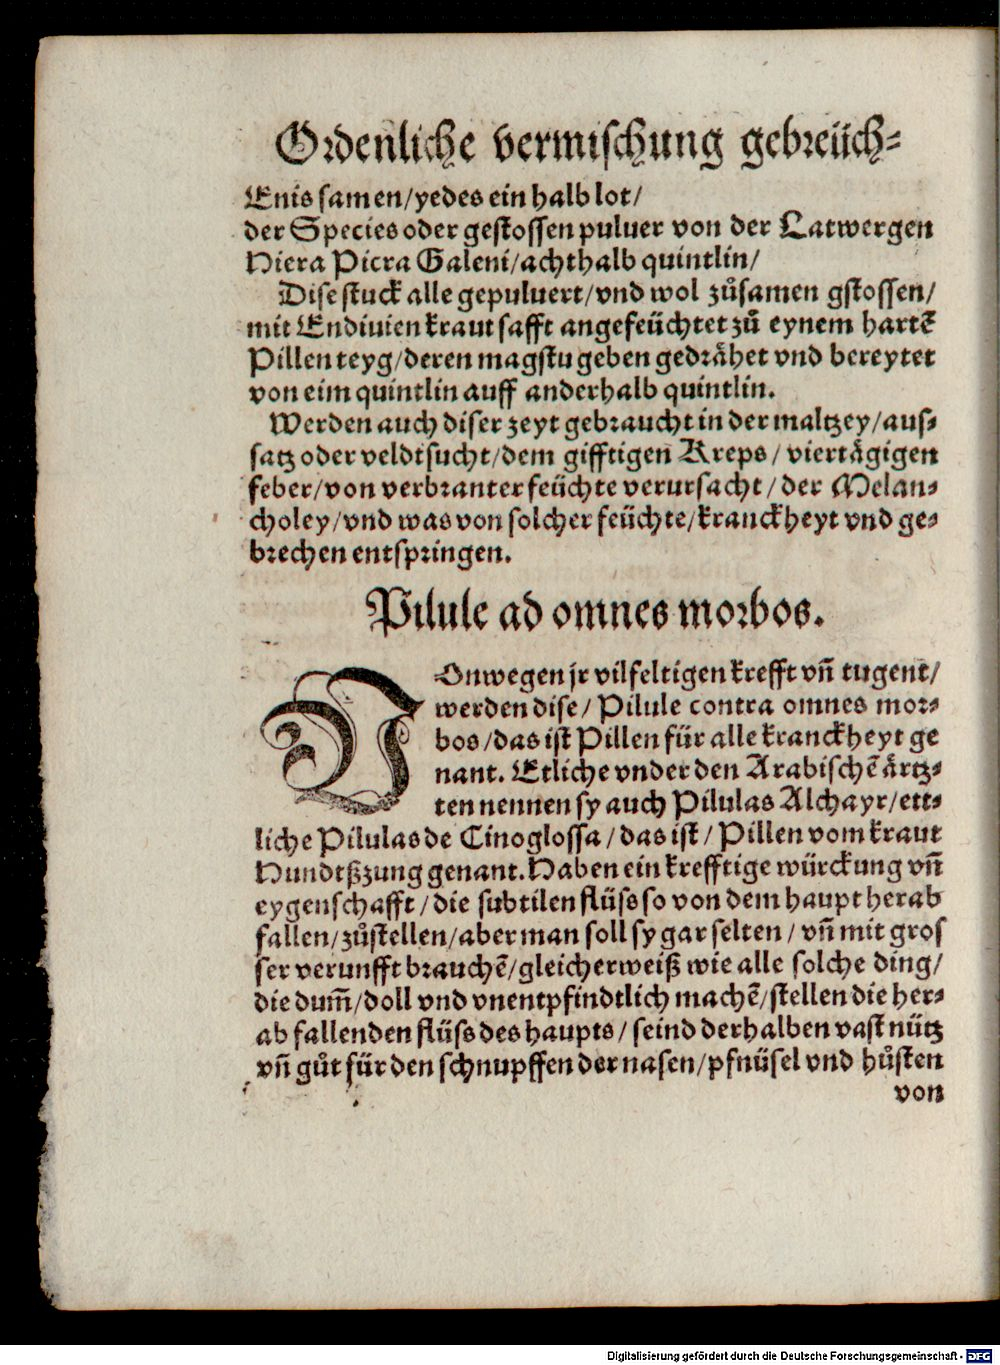 Ordenliche vermischung gebreüch-
Enis samen/yedes ein halb lot/
der Species oder gestossen puluer von der Latwergen
Hiera Picra Galeni/achthalb quintlin/
Dise stuck alle gepuluert/vnd wol zůsamen gstossen/
mit Endiuien kraut safft angefeüchtet zů eynem hartē
Pillen teyg/deren magstu geben gedrähet vnd bereytet
von eim quintlin auff anderhalb quintlin.
Werden auch diser zeyt gebraucht in der maltzey/aus-
satz oder veldtsucht/dem gifftigen Kreps/viertägigen
feber/von verbranter feüchte verursacht/der Melan-
choley/vnd was von solcher feüchte/kranckheyt vnd ge-
brechen entspringen.
Pilule ad omnes morbos.
VOnwegen jr vilfeltigen krefft vñ tugent/
werden dise/Pilule contra omnes mor-
bos/das ist Pillen für alle kranckheyt ge
nant. Etliche vnder den Arabischē ärtz-
ten nennen sy auch Pilulas Alchayr/ett-
liche Pilulas de Cinoglossa/das ist/Pillen vom kraut
Hundtßzung genant. Haben ein krefftige würckung vñ
eygenschafft/die subtilen flüss so von dem haupt herab
fallen/zůstellen/aber man soll sy gar selten/vñ mit gros
ser verunfft brauchē/gleicherweiß wie alle solche ding/
die dum̄/doll vnd vnentpfindtlich machē/stellen die her-
ab fallenden flüss des haupts/seind derhalben vast nütz
vñ gůt für den schnupffen der nasen/pfnüsel vnd hůsten
von
Digitalisierung gefördert durch die Deutsche Forschungsgemeinschaft - DFG